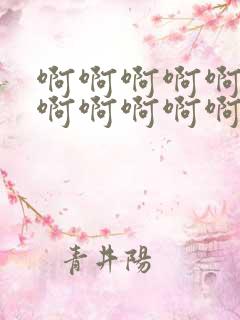 啊啊啊啊啊
啊啊啊啊啊
青井陽